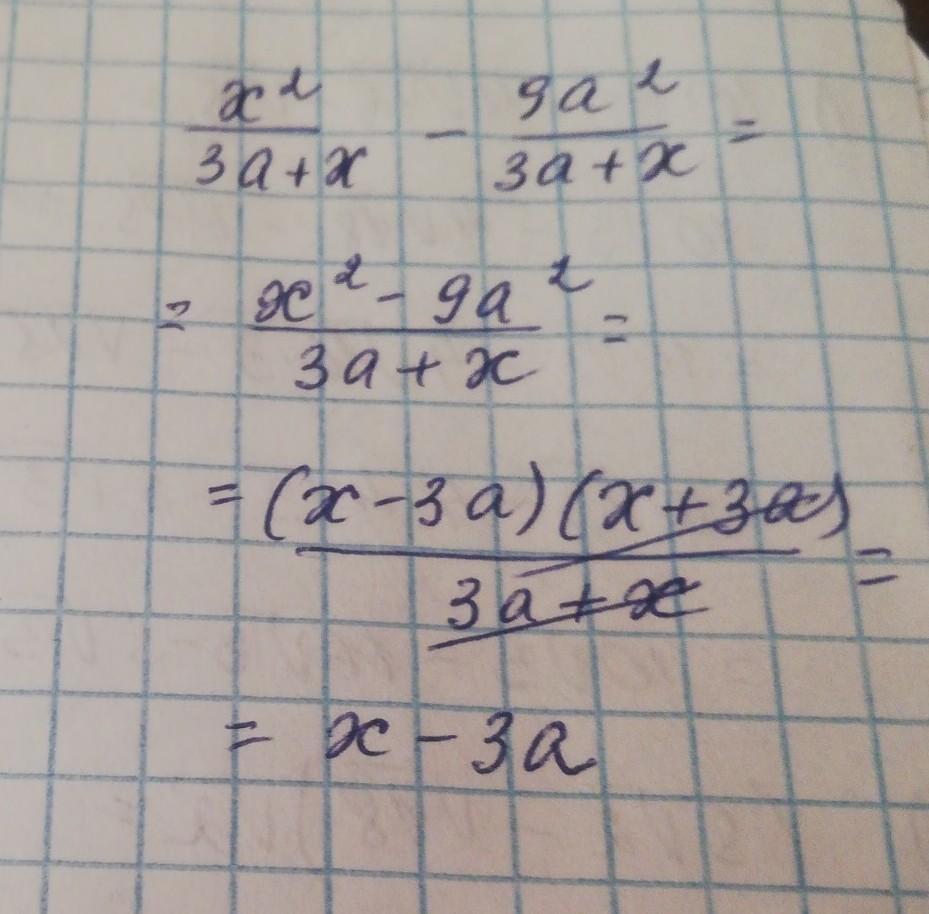 x²/(3a+x) − 9a²/(3a+x) =
= (x² − 9a²)/(3a+x) =
= (x−3a)(x+3a)/(3a+x) =
= x − 3a